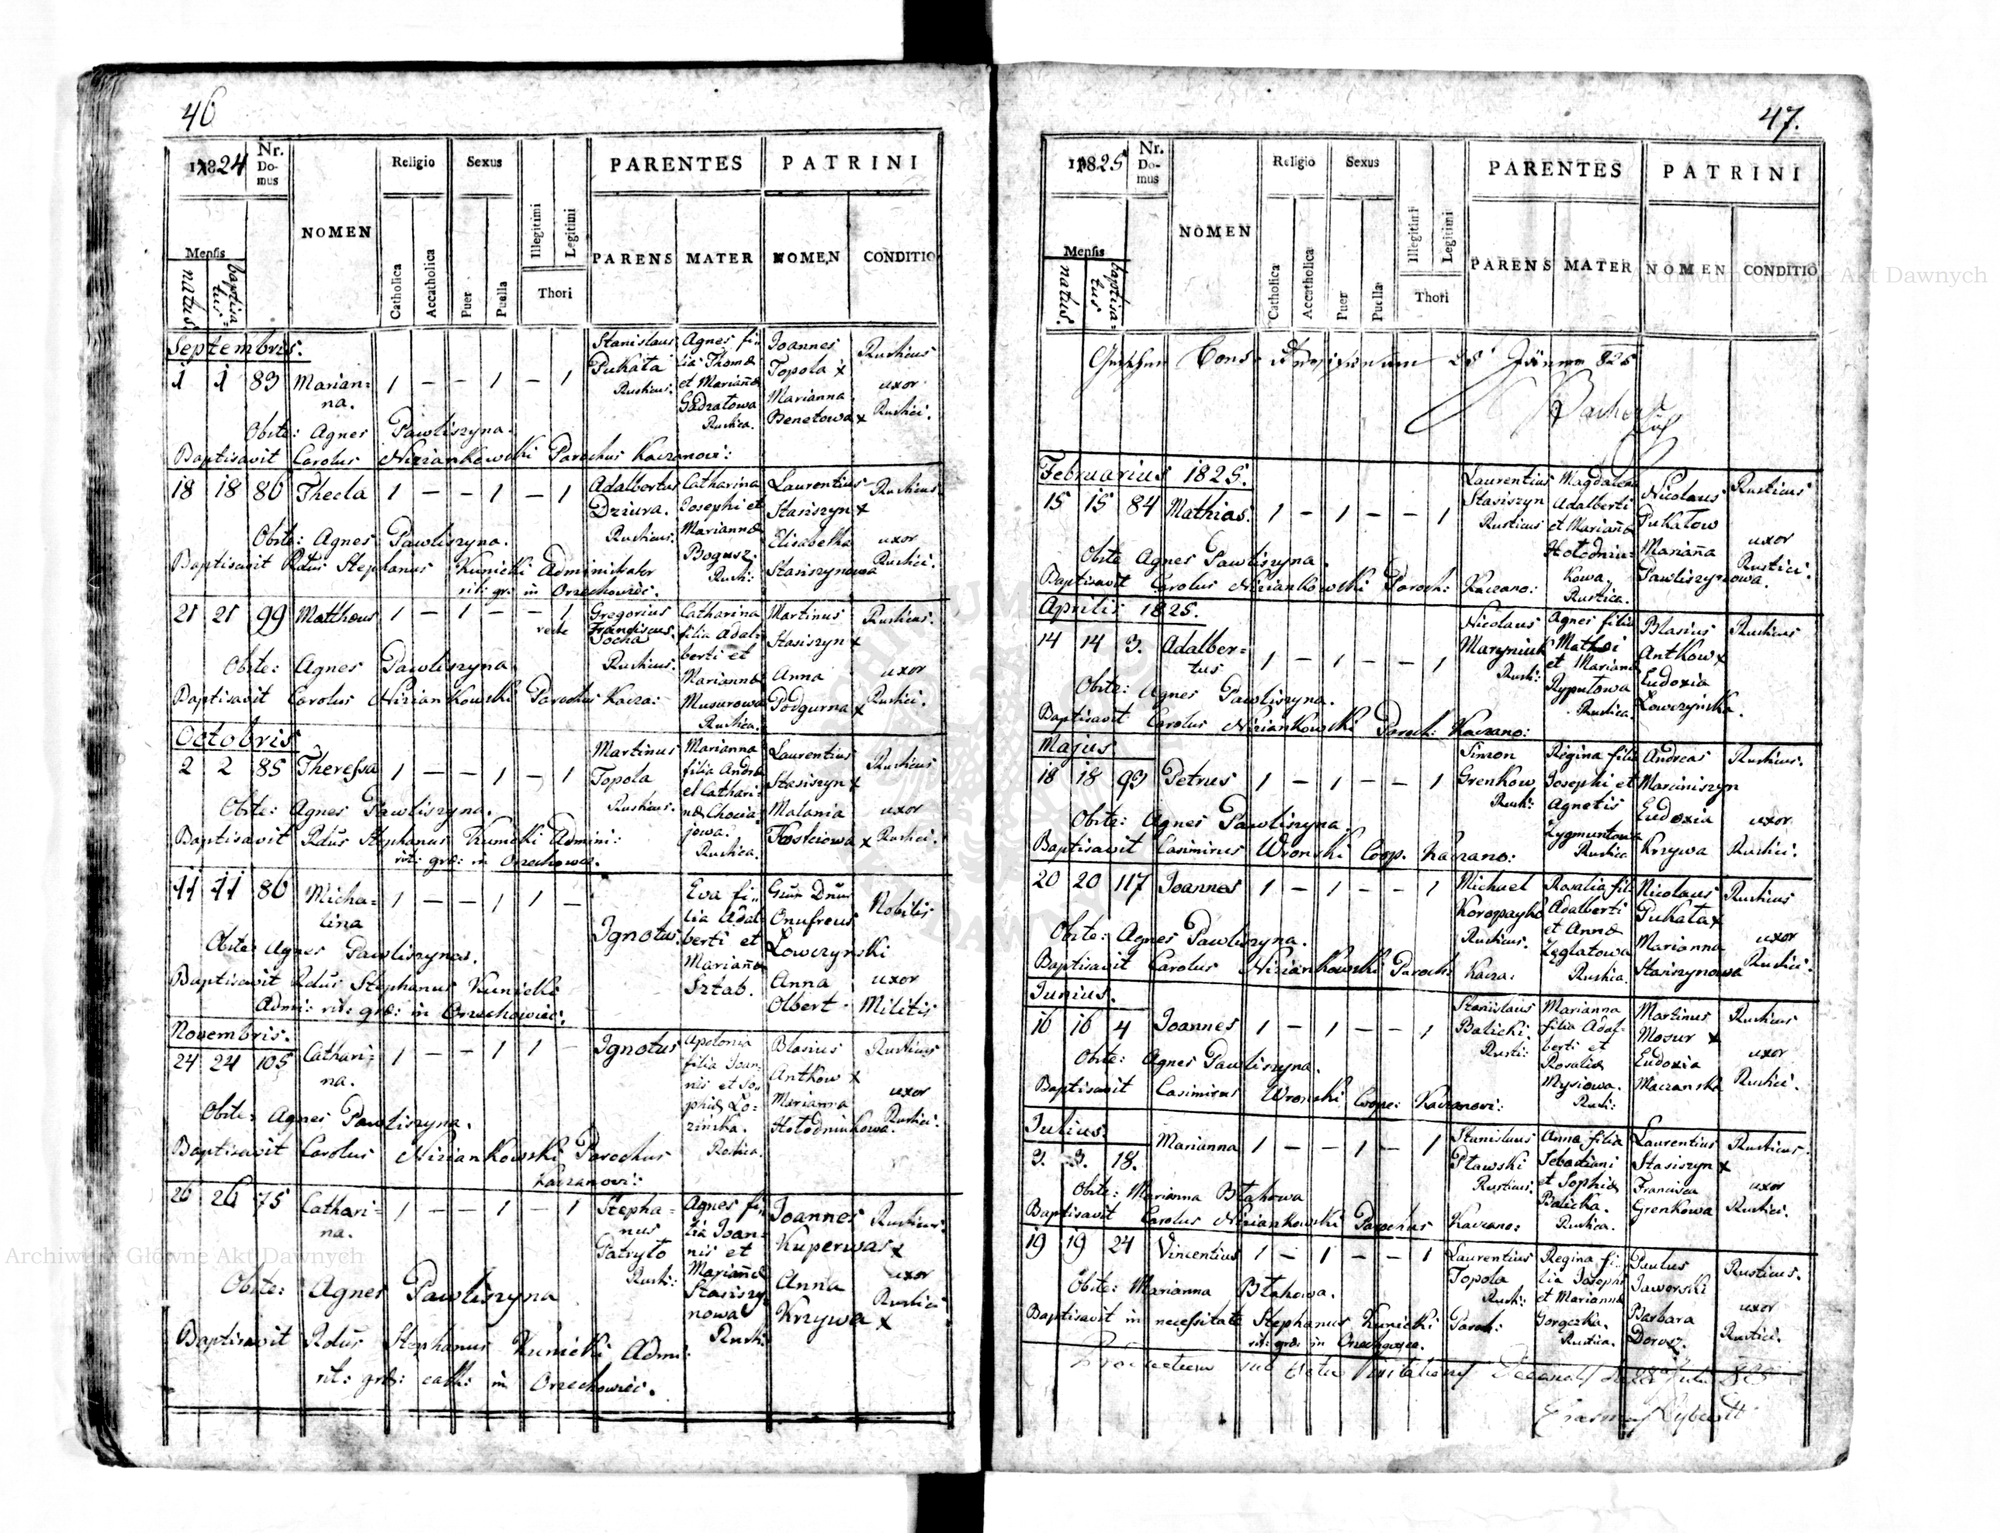 46
1824
Nr. Domus
NOMEN
Religio
Sexus
PARENTES
PATRINI
Mensis
natus
baptisatus
Catholica
Accatholica
Puer
Puella
Illegitimi
Legitimi
Thori
PARENS
MATER
NOMEN
CONDITIO
Septembris.
1 1 83 Marianna. 1 – – 1 – 1
Stanislaus Pukata Rusticus.
Agnes filia Thomæ et Mariannæ Rustica.
Joannes Topola x Marianna Benetowa x
Rusticus uxor Rustici.
Obste: Agnes Pawliszyna.
Baptisavit Carolus Niziankowski Parochus Kaczanov:
18 18 86 Thecla 1 – – 1 – 1
Adalbertus Dziura. Rusticus.
Catharina Josephi et Mariannæ Bogusz. Rusti:
Laurentius Stasiszyn x Elisabetha Stasiszynowa
Rusticus uxor Rustici.
Obste: Agnes Pawliszyna.
Baptisavit Rdus Stephanus Kunicki Administrator
rit: gr: in Orzechowiec.
21 21 99 Mattheus 1 – 1 – – 1
recte
Gregorius Franciscus Socha Rusticus.
Catharina filia Adalberti et Mariannæ Musurowa Rustica.
Martinus Stasiszyn x Anna Podgurna x
Rusticus. uxor Rustici.
Obste: Agnes Pawliszyna
Baptisavit Carolus Niziankowski Parochus Kacza:
Octobris
2 2 85 Theressa 1 – – 1 – 1
Martinus Topola Rusticus.
Marianna filia Andreæ et Catharinæ Rustica.
Laurentius Stasiszyn x Malania Kosteiowa x
Rusticus uxor Rustici.
Obste: Agnes Pawliszyna.
Baptisavit Rdus Stephanus Kunicki Admini:
rit: græ: in Orzechowec.
11 11 86 Michalina 1 – – 1 1 –
Ignotus
Eva filia Adalberti et Mariannæ Sztab.
Onufreus Łowczynski Anna Olbert
Nobilis uxor Militis
Obste: Agnes Pawliszyna.
Baptisavit Rdus Stephanus Kunicki
Admi: rit: græ: in Orzechowiec.
Novembris.
24 24 105 Catharina. 1 – – 1 1 –
Ignotus
Apolonia filia Joannis et Sophiæ Lozinska. Rustica.
Blasius Anthow x Marianna Hołodniukowa.
Rusticus uxor Rustici.
Obste: Agnes Pawliszyna.
Baptisavit Carolus Niziankowski Parochus
Kaczanovi:
26 26 75 Catharina. 1 – – 1 – 1
Stephanus Patryto Rusti:
Agnes filia Joannis et Mariannæ Stasiszynowa Rusti:
Joannes Kuperwas x Anna Krzywa x
Rusticus. uxor Rustici
Obste: Agnes Pawliszyna
Baptisavit Rdus Stephanus Kunicki Admi:
rit: græ: cath: in Orzechowiec.
47.
1825
Nr. Domus
NOMEN
Religio
Sexus
PARENTES
PATRINI
Mensis
natus.
baptisatus
Catholica
Accatholica
Puer
Puella
Illegitimi
Legitimi
Thori
PARENS
MATER
NOMEN
CONDITIO
Februarius 1825.
15 15 84 Mathias. 1 – 1 – – 1
Laurentius Stasiszyn Rusticus
Magdalena Adalberti et Mariannæ Hołodniukowa. Rustica.
Nicolaus Pukatow Marianna Pawliszynowa.
Rusticus uxor Rustici.
Obste Agnes Pawliszyna.
Baptisavit Carolus Niziankowski Paroch: Kaczano:
Aprilis 1825.
14 14 3. Adalbertus 1 – 1 – – 1
Nicolaus Maryniuk Rusti:
Agnes filia Mathei et Mariannæ Ryputowa Rustica.
Blasius Anthow x Eudoxia Łowczyńska.
Rusticus
Obste: Agnes Pawliszyna.
Baptisavit Carolus Niziankowski Paroch: Kaczano:
Majus
18 18 93 Petrus 1 – 1 – – 1
Simon Grenkow Rusti:
Regina filia Josephi et Agnetis Zygmuntowa Rustica
Andreas Marciniszyn Eudoxia Krzywa
Rusticus. uxor Rustici.
Obste: Agnes Pawliszyna.
Baptisavit Casimirus Wronski Coop. Kaczano:
20 20 117 Joannes 1 – 1 – – 1
Michael Koropayko Rusticus.
Rosalia fil: Adalberti et Annæ Rustica.
Nicolaus Pukata x Marianna Stasiszynowa
Rusticus uxor Rustici.
Obste: Agnes Pawliszyna.
Baptisavit Carolus Niziankowski Paroch: Kacza:
Junius.
16 16 4 Joannes 1 – 1 – – 1
Stanislaus Balicki Rusti:
Marianna filia Adalberti et Rosaliæ Mysiowa. Rusti:
Martinus Mosur x Eudoxia Maczanska
Rusticus uxor Rustici.
Obste: Agnes Pawliszyna.
Baptisavit Casimirus Wronski Coope: Kaczanovi:
Julius.
3. 3. 18. Marianna 1 – – 1 – 1
Stanislaus Pławski Rusticus.
Anna filia Sebastiani et Sophiæ Balicka. Rustica.
Laurentius Stasiszyn x Francisca Grenkowa
Rusticus. uxor Rustici.
Obste: Marianna Błahowa
Baptisavit Carolus Niziankowski Parochus Kaczano:
19 19 24 Vincentius 1 – 1 – – 1
Laurentius Topola Rusti:
Regina filia Josephi et Marianna Goręczka. Rustica.
Paulus Jaworski Barbara Dorosz.
Rusticus. uxor Rustici.
Obste: Marianna Błahowa.
Baptisavit in necessitate Stephanus Kunicki Paroch:
rit: græ: in Orzechowce.
Archiwum Główne Akt Dawnych
Archiwum Główne Akt Dawnych